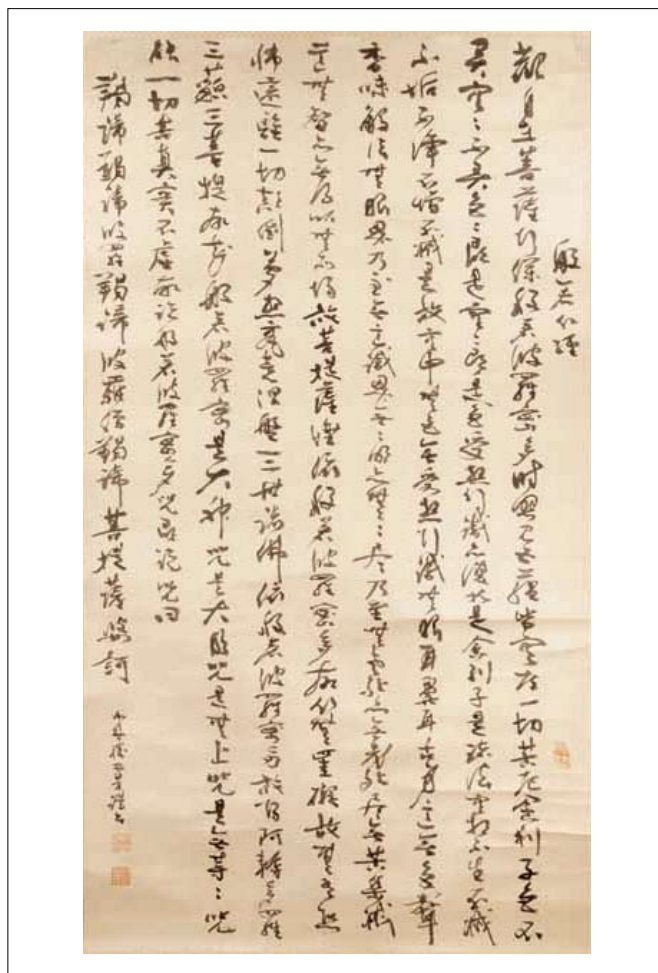 般若心経
観自在菩薩行深般若波羅蜜多時照見五蘊皆空度一切苦厄舎利子色不
異空〻不異色〻即是空〻即是色受想行識亦復如是舎利子是諸法空相不生不滅
不垢不浄不増不減是故空中無色無受想行識無眼耳鼻舌身意無色声
香味触法無眼界乃至無意識界無〻明亦無〻尽乃至無老死亦無老死尽無苦集滅
道無智亦無得以無所得故菩提薩埵依般若波羅蜜多故心無罣礙故無有恐
怖遠離一切顛倒夢想究竟涅槃三世諸佛依般若波羅蜜多故得阿耨多羅
三藐三菩提故知般若波羅蜜是大神呪是大明呪是無上呪是無等〻呪
能一切苦真実不虚故説般若波羅蜜多呪即説呪曰
羯諦羯諦波羅羯諦波羅僧羯諦菩提薩婆訶